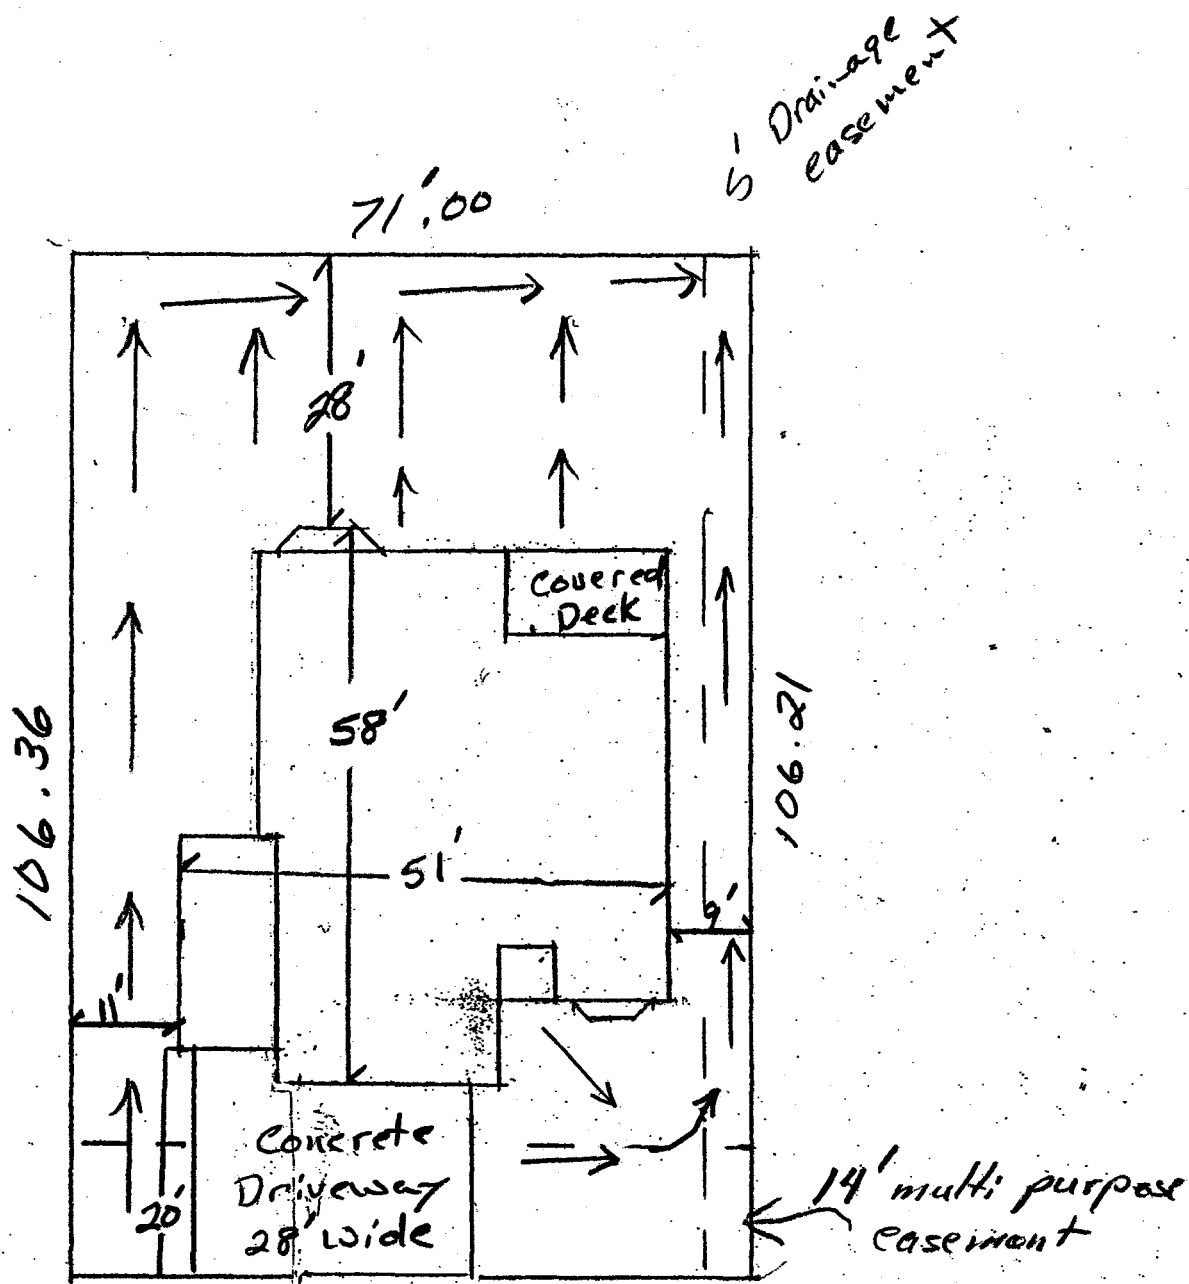 5' Drainage
easement
71'.00
28'
Covered
Deck
58'
106.36
106.21
51'
9'
11'
Concrete
Driveway
28' wide
20'
14' multi purpose
easement